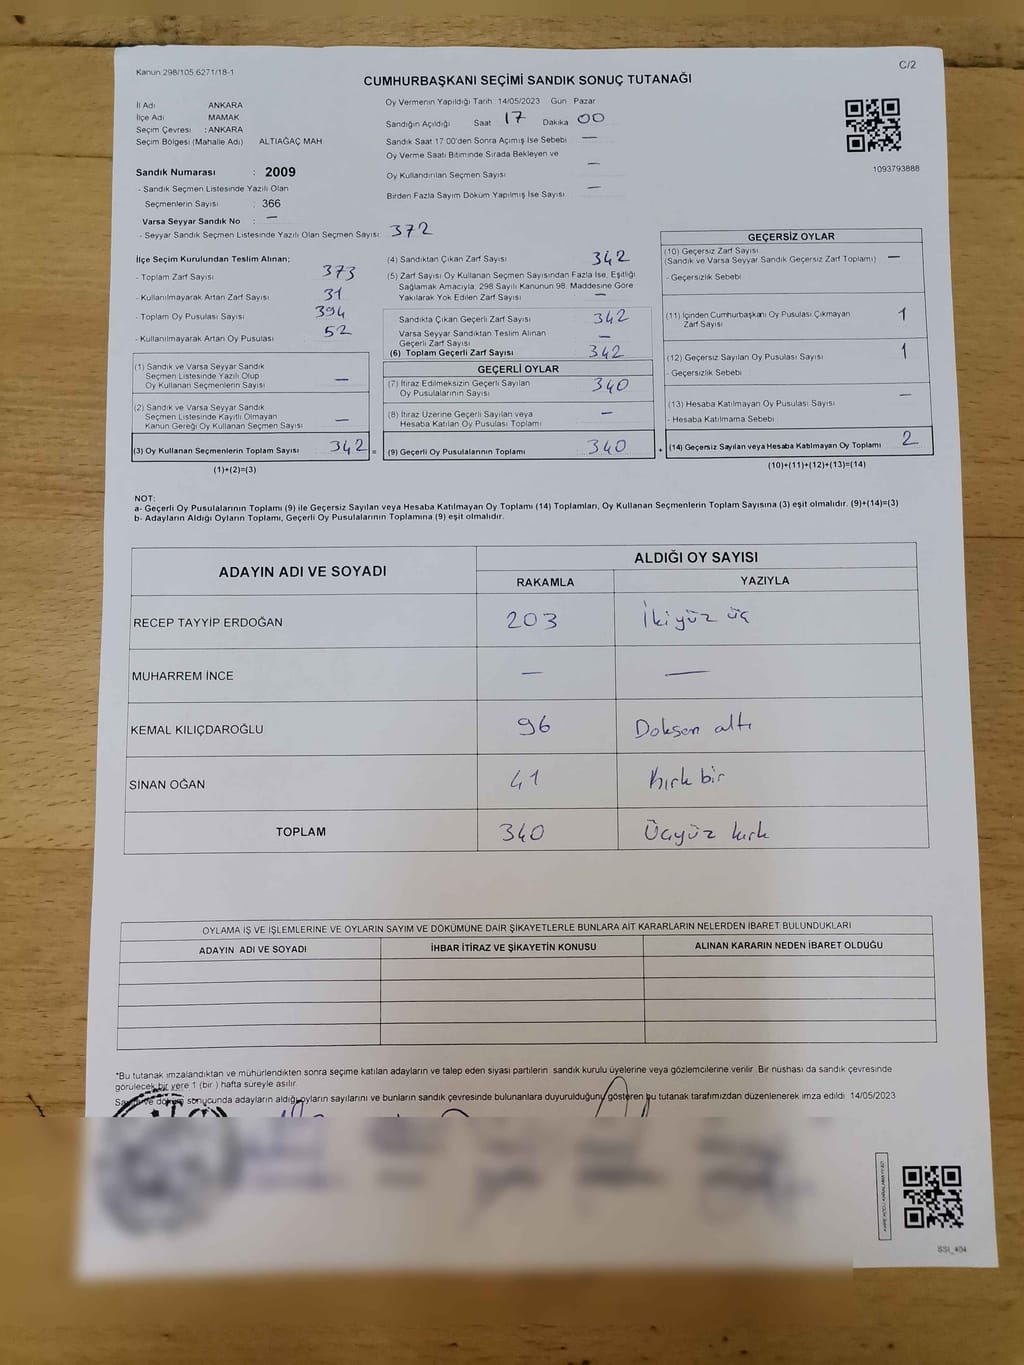 Kanun:298/105,6271/18-1
C/2
CUMHURBAŞKANI SEÇİMİ SANDIK SONUÇ TUTANAĞI
İl Adı ANKARA
İlçe Adı MAMAK
Seçim Çevresi : ANKARA
Seçim Bölgesi (Mahalle Adı) ALTIAĞAÇ MAH
Sandık Numarası : 2009
- Sandık Seçmen Listesinde Yazılı Olan
Seçmenlerin Sayısı : 366
Varsa Seyyar Sandık No : —
- Seyyar Sandık Seçmen Listesinde Yazılı Olan Seçmen Sayısı: 372
Oy Vermenin Yapıldığı Tarih 14/05/2023 Gün Pazar
Sandığın Açıldığı Saat 17 Dakika 00
Sandık Saat 17:00'den Sonra Açımış İse Sebebi —
Oy Verme Saati Bitiminde Sırada Bekleyen ve
Oy Kullandırılan Seçmen Sayısı —
Birden Fazla Sayım Döküm Yapılmış İse Sayısı —
1093793888
İlçe Seçim Kurulundan Teslim Alınan;
- Toplam Zarf Sayısı 373
- Kullanılmayarak Artan Zarf Sayısı 31
- Toplam Oy Pusulası Sayısı 394
- Kullanılmayarak Artan Oy Pusulası 52
(1) Sandık ve Varsa Seyyar Sandık
Seçmen Listesinde Yazılı Olup
Oy Kullanan Seçmenlerin Sayısı —
(2) Sandık ve Varsa Seyyar Sandık
Seçmen Listesinde Kayıtlı Olmayan
Kanun Gereği Oy Kullanan Seçmen Sayısı —
(3) Oy Kullanan Seçmenlerin Toplam Sayısı 342 =
(1)+(2)=(3)
(4) Sandıktan Çıkan Zarf Sayısı 342
(5) Zarf Sayısı Oy Kullanan Seçmen Sayısından Fazla İse, Eşitliği
Sağlamak Amacıyla, 298 Sayılı Kanunun 98. Maddesine Göre
Yakılarak Yok Edilen Zarf Sayısı —
Sandıkta Çıkan Geçerli Zarf Sayısı 342
Varsa Seyyar Sandıktan Teslim Alınan
Geçerli Zarf Sayısı —
(6) Toplam Geçerli Zarf Sayısı 342
GEÇERLİ OYLAR
(7) İtiraz Edilmeksizin Geçerli Sayılan
Oy Pusulalarının Sayısı 340
(8) İtiraz Üzerine Geçerli Sayılan veya
Hesaba Katılan Oy Pusulası Toplamı —
(9) Geçerli Oy Pusulalarının Toplamı 340 +
GEÇERSİZ OYLAR
(10) Geçersiz Zarf Sayısı
(Sandık ve Varsa Seyyar Sandık Geçersiz Zarf Toplamı) —
- Geçersizlik Sebebi
(11) İçinden Cumhurbaşkanı Oy Pusulası Çıkmayan
Zarf Sayısı 1
(12) Geçersiz Sayılan Oy Pusulası Sayısı 1
- Geçersizlik Sebebi
(13) Hesaba Katılmayan Oy Pusulası Sayısı —
- Hesaba Katılmama Sebebi
(14) Geçersiz Sayılan veya Hesaba Katılmayan Oy Toplamı 2
(10)+(11)+(12)+(13)=(14)
NOT:
a- Geçerli Oy Pusulalarının Toplamı (9) ile Geçersiz Sayılan veya Hesaba Katılmayan Oy Toplamı (14) Toplamları, Oy Kullanan Seçmenlerin Toplam Sayısına (3) eşit olmalıdır. (9)+(14)=(3)
b- Adayların Aldığı Oyların Toplamı, Geçerli Oy Pusulalarının Toplamına (9) eşit olmalıdır.
ADAYIN ADI VE SOYADI
ALDIĞI OY SAYISI
RAKAMLA YAZIYLA
RECEP TAYYİP ERDOĞAN 203 İkiyüz üç
MUHARREM İNCE — —
KEMAL KILIÇDAROĞLU 96 Doksan altı
SİNAN OĞAN 41 Kırk bir
TOPLAM 340 Üçyüz kırk
OYLAMA İŞ VE İŞLEMLERİNE VE OYLARIN SAYIM VE DÖKÜMÜNE DAİR ŞİKAYETLERLE BUNLARA AİT KARARLARIN NELERDEN İBARET BULUNDUKLARI
ADAYIN ADI VE SOYADI İHBAR İTİRAZ VE ŞİKAYETİN KONUSU ALINAN KARARIN NEDEN İBARET OLDUĞU
*Bu tutanak imzalandıktan ve mühürlendikten sonra seçime katılan adayların ve talep eden siyasi partilerin sandık kurulu üyelerine veya gözlemcilerine verilir. Bir nüshası da sandık çevresinde
görülecek bir yere 1 (bir ) hafta süreyle asılır.
ve döküm sonucunda adayların aldığı oyların sayılarını ve bunların sandık çevresinde bulunanlara duyurulduğunu gösteren bu tutanak tarafımızdan düzenlenerek imza edildi. 14/05/2023
SSI_404